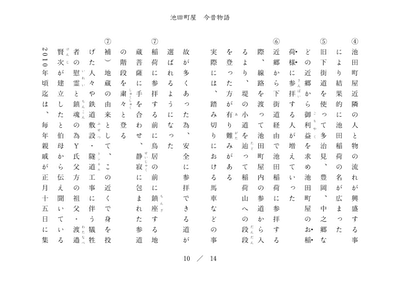 池田町屋　今昔物語
④　池田町屋近隣の人と物の流れが興盛する事
により結果的に池田と稲荷の名が広まった
⑤　旧下街道を使って多治見、豊岡、中之郷な
どの近郷から御利益を求め池田町屋のお稲
荷様に参拝する人が増えていった
⑥　近郷から下街道経由で池田稲荷に参拝する
際、線路を渡って池田町屋内の参道から入
るより、堤の小道を辿って稲荷山への段段
を登った方が有り難みがある
実際には、踏み切りにおける馬車などの事
故が多くあった為、安全に参拝できる道が
選ばれるようになった
⑦　稲荷に参拝する前に鳥居の前に鎮座する地
蔵菩薩に手を合わせ、静寂に包まれた参道
の階段を粛々と登る
補）地蔵の由来として、この近くで身を投
げた人々や鉄道敷設・隧道工事に伴う犠牲
者の慰霊と鎮魂の為Y氏父方の祖父・渡邉
賢次が建立したと伯母から伝え聞いている
2010年頃迄は、毎年親戚が正月十五日に集
10　／　14